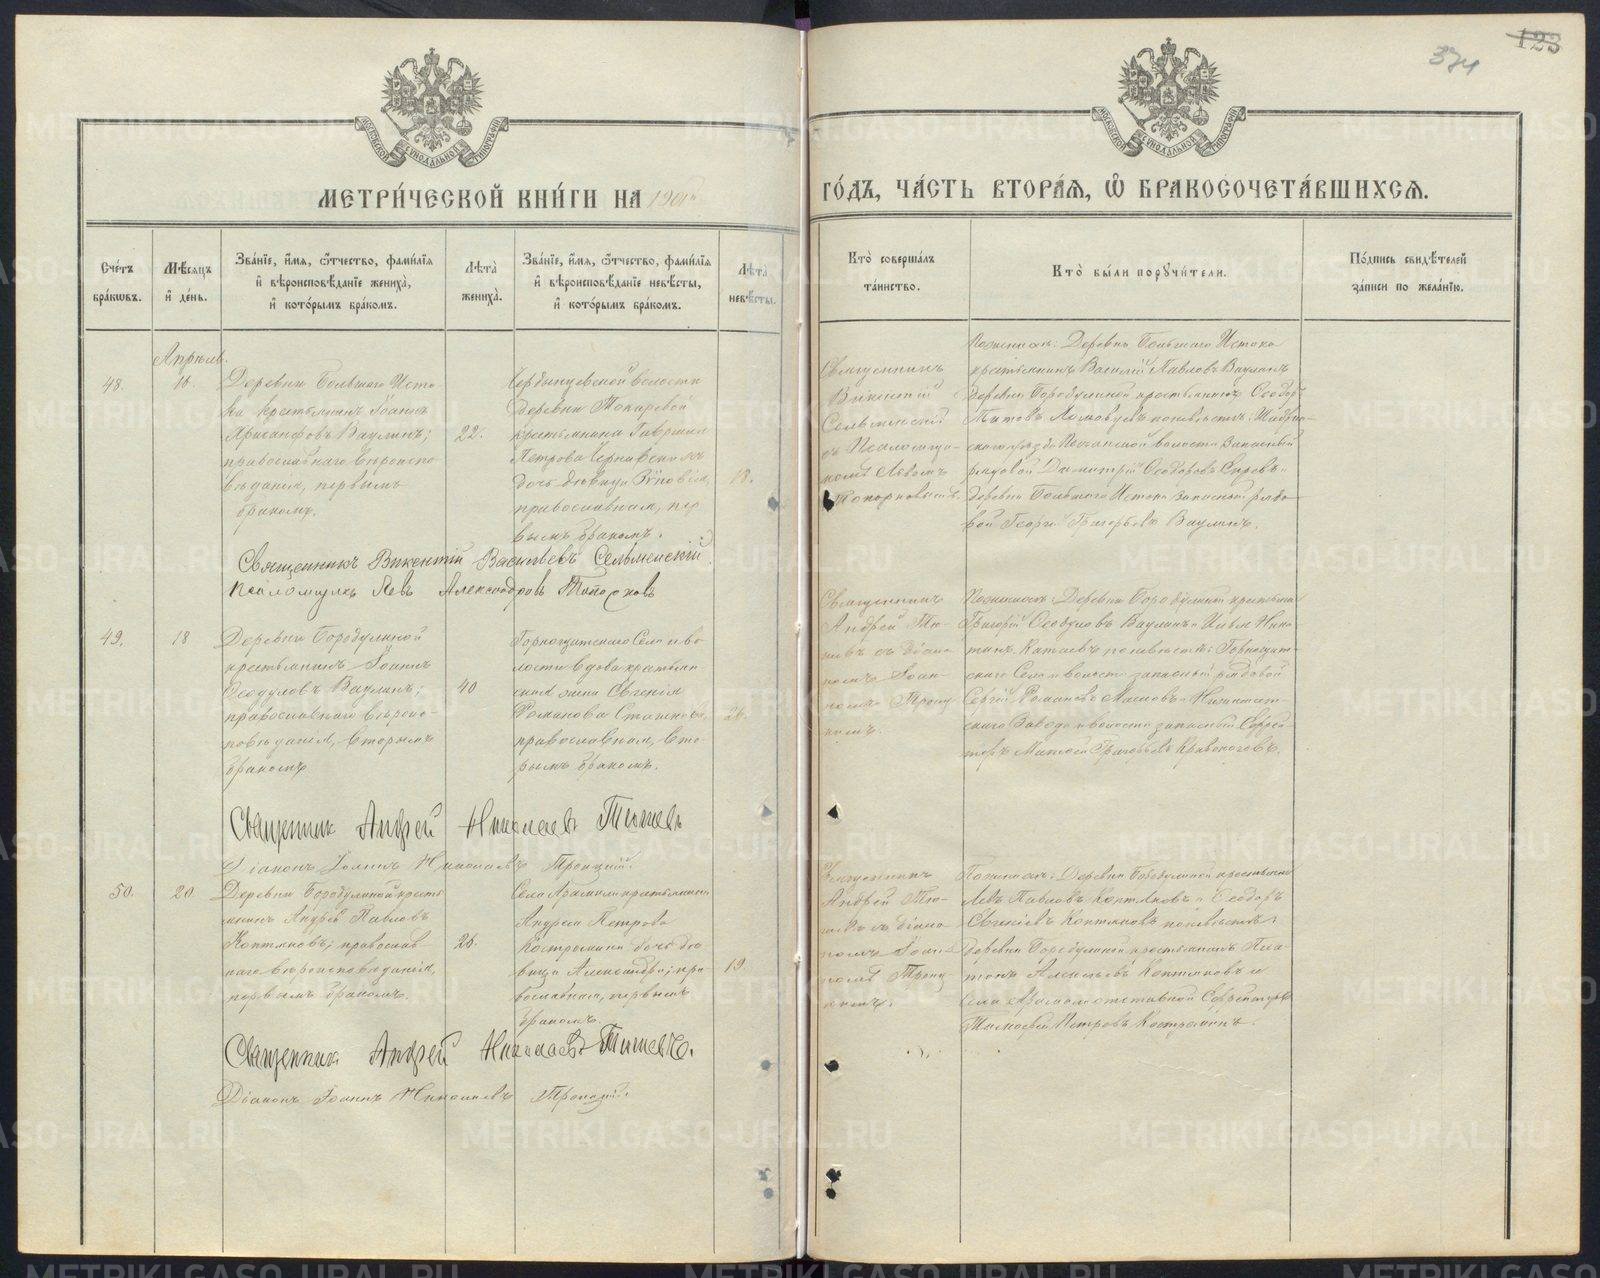 123
374
МОСКОВСКОЙ СѴНОДАЛЬНОЙ ТИПОГРАФІИ
МОСКОВСКОЙ СѴНОДАЛЬНОЙ ТИПОГРАФІИ
МЕТРИ́ЧЕСКОЙ КНИ́ГИ НА 1901
ГО́ДЪ, ЧА́СТЬ ВТОРА́Ѧ, Ѽ БРАКОСОЧЕТА́ВШИХСѦ.
Сче́тъ бра́кѡвъ.
Мѣ́сѧцъ и҆ де́нь.
Зва́нїе, и҆́мѧ, ѻ҆́тчество, фами́лїѧ и҆ вѣроисповѣ́данїе жениха̀, и҆ кото́рымъ бра́комъ.
Лѣ́та жениха̀.
Зва́нїе, и҆́мѧ, ѻ҆́тчество, фами́лїѧ и҆ вѣроисповѣ́данїе невѣ́сты, и҆ кото́рымъ бра́комъ.
Лѣ́та невѣ́сты.
Кто̀ соверша́лъ та́инство.
Кто̀ бы́ли порꙋчи́тели.
По́дпись свидѣ́телей за́писи по жела́нїю.
Апрѣль.
48.
18.
Деревни Большаго Исто
ка крестьянинъ Іоаннъ
Хрисанфовъ Ваулинъ;
православнаго вѣроиспо
вѣданія, первымъ
бракомъ.
22.
волости
деревни Токаревой
крестьянина Гавріила
Петрова
дочь дѣвица Зиновія,
православная, пер
вымъ бракомъ.
18.
Священникъ
Викентій
Сельменскій
съ Псаломщи
комъ Львомъ
Топорковымъ.
Деревни Большаго Истока
крестьянинъ Василій Павловъ Ваулинъ
Деревни Бородулиной крестьянинъ Ѳеодор
по невѣстѣ: Шадрин
скаго уѣзда волости Запасный
рядовой Димитрій Ѳеодоровъ
деревни Большаго Истока запасный рядо
вой Георгій Григорьевъ Ваулинъ.
Священникъ Викентій Васильевъ Сельменскій.
Псаломщикъ Левъ Александровъ Топорковъ
49.
18
Деревни Бородулиной
крестьянинъ Іоаннъ
Ѳеодуловъ Ваулинъ;
православнаго вѣроис-
повѣданія, вторымъ
бракомъ
40
Горнощитскаго Села и во
лости вдова крестьян
ская жена Евгенія
Романова
православная, вто
рымъ бракомъ.
Священникъ
Андрей Тю-
шевъ съ діако
номъ Іоан-
номъ Троиц
кимъ.
Деревни Бородулиной крестьяне
Григорій Ѳеодуловъ Ваулинъ и Илья Ники
тинъ Катаевъ по невѣстѣ: Горнощит-
скаго Села и волости запасный рядовой
Сергій Романовъ
скаго Завода и волости запасный Ефрей
торъ Матвей Григорьевъ Кривоноговъ.
Священник Андрей Николаевъ Тюшевъ
Діаконъ Іоаннъ Николаевъ Троицкій.
50.
20
Деревни Бородулиной кресть
янинъ Андрей Павловъ
Коптяковъ; православ
наго вѣроисповѣданія,
первымъ бракомъ.
Села Арамили крестьянина
Андрея Петрова
Костромина дочь дѣ
вица Александра; пра
вославная, первымъ
бракомъ.
19
Священникъ
Андрей Тю-
шевъ съ діако
номъ Іоан-
номъ Троиц
кимъ.
Деревни Бородулиной крестьяне
Левъ Павловъ Коптяковъ и Ѳеодоръ
Евгеніевъ Коптяковъ по невѣстѣ:
Деревни Бородулиной крестьянинъ Пла
тонъ Алексѣевъ Коптяковъ и
села Арамили отставной Ефрейторъ
Тимофей Петровъ Костроминъ.
Священник Андрей Николаевъ Тюшевъ.
Діаконъ Іоаннъ Николаевъ Троицкій.
METRIKI.GASO-URAL.RU